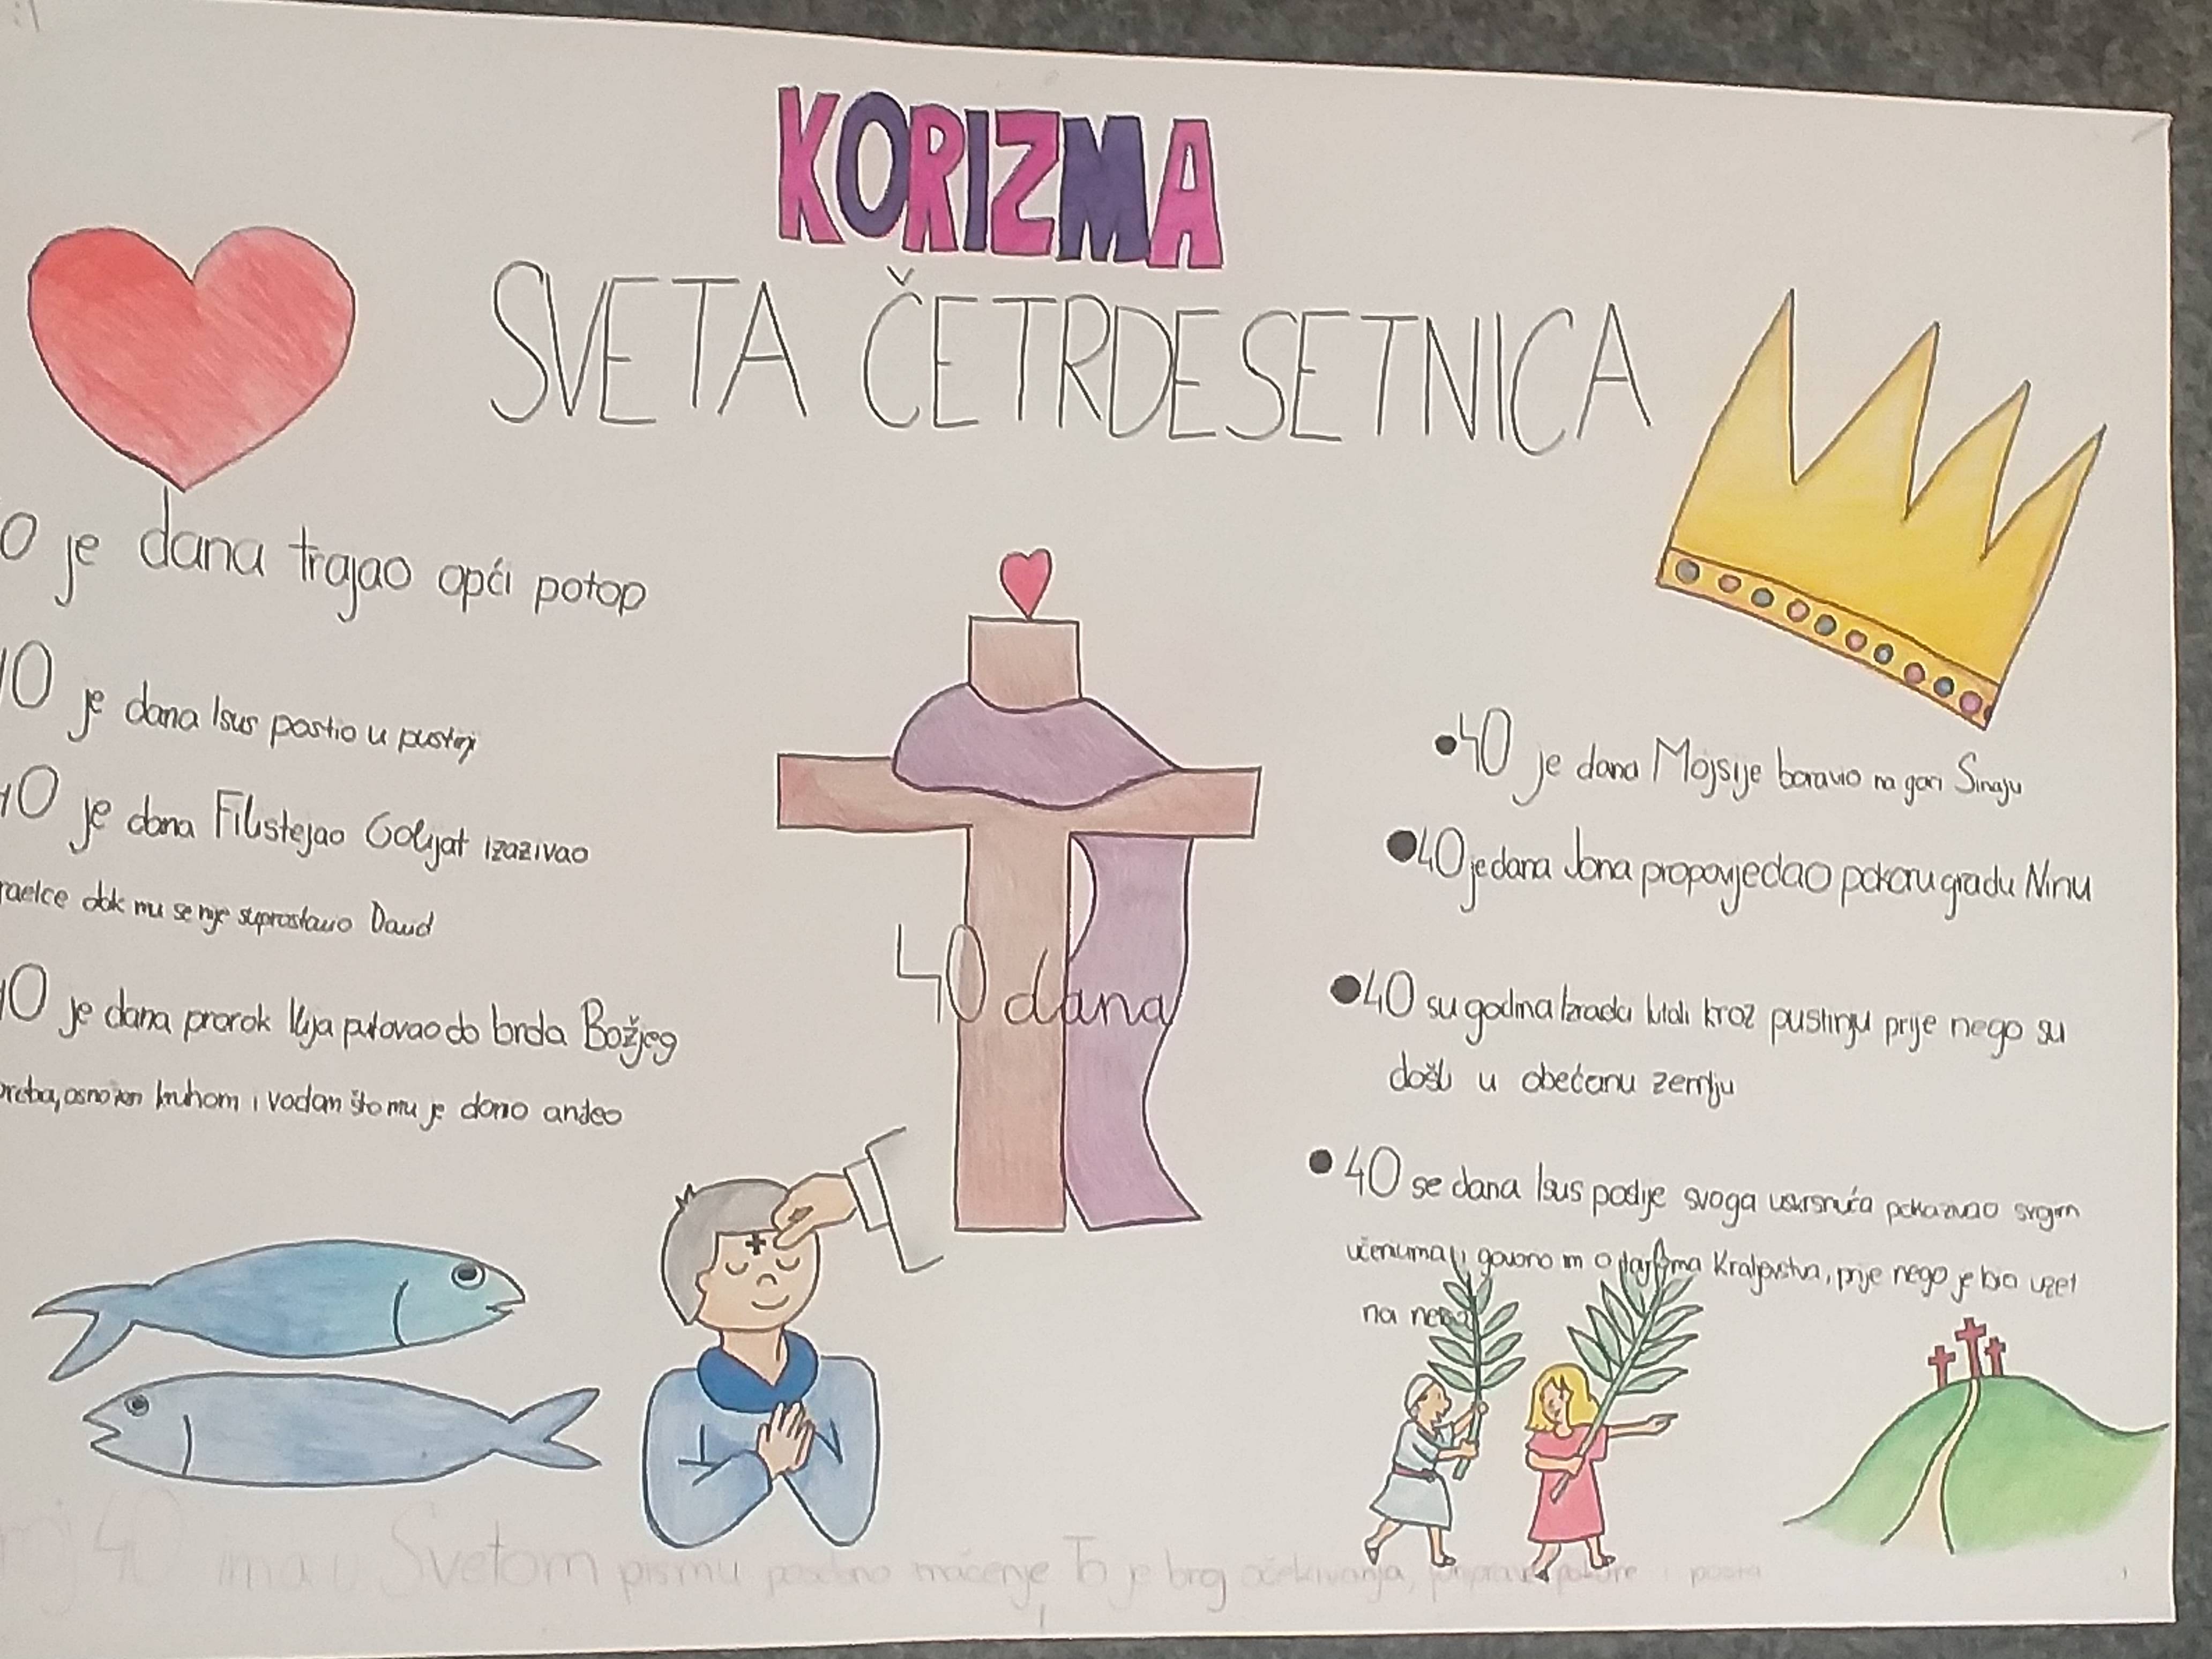 KORIZMA
SVETA ČETRDESETNICA
0 je dana trajao opći potop
40 je dana Isus postio u pustinji
40 je dana Filistejac Golijat izazivao
raelce dok mu se nije suprostavio David
40 je dana prorok Ilija putovao do brda Božjeg
kruhom i vodom što mu je dono anđeo
40 dana
•40 je dana Mojsije boravio na gori Sinaju
•40 je dana Jona propovjedao pokoru gradu Ninu
•40 su godina Izraelci lutali kroz pustinju prije nego su
došli u obećanu zemlju
•40 se dana Isus poslije svoga uskrsnuća pokazivao svojim
učenicima i govorio m o Kraljevstva, prije nego je bio uzet
na nebo
40 ima u Svetom pismu posebno To je brg očekivanja, priprave pokore i posta